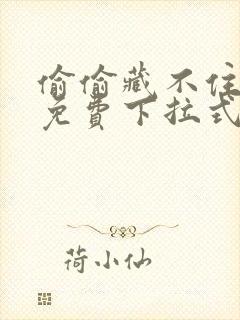 偷偷藏不住
免費下拉式
荷小仙